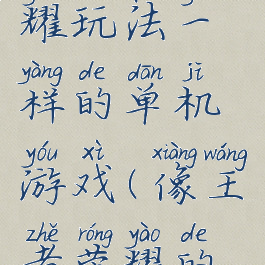 耀玩法一
yàng de dān jī
样的单机
yóu xì xiàng wáng
游戏(像王
zhě róng yào de
者荣耀的